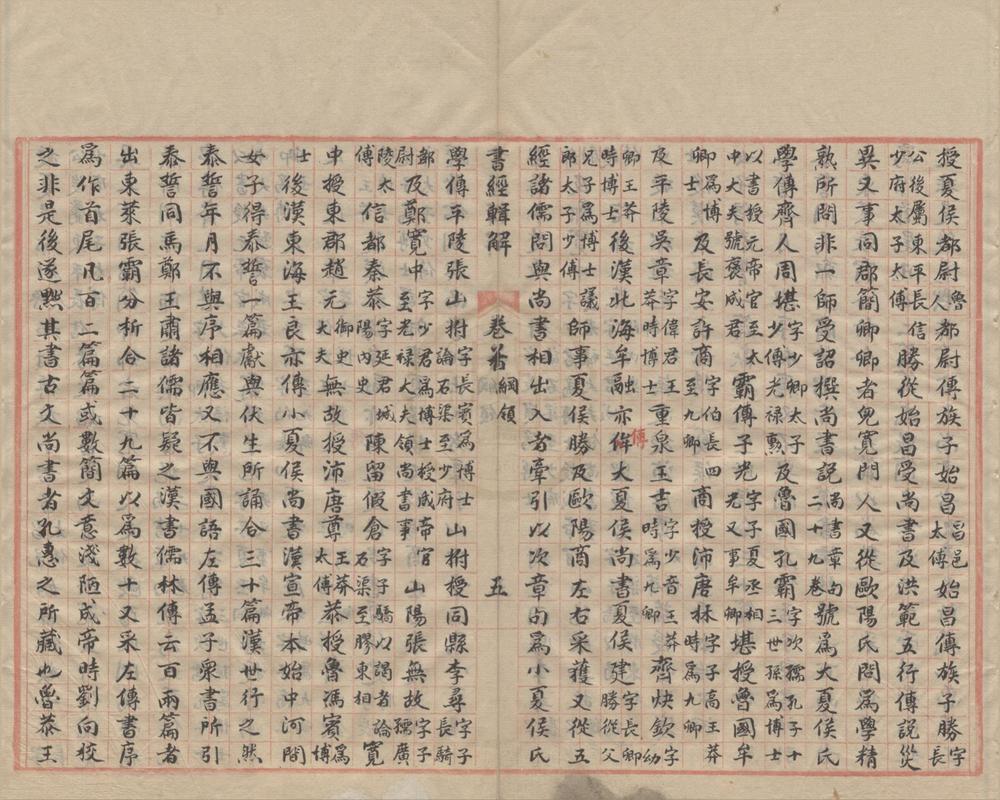 授夏侯都尉魯人都尉傳族子始昌昌邑太傅始昌傳族子勝字長
公後屬東平長信少府太子太傅勝從始昌受尚書及洪範五行傳說災
異又事同郡簡卿卿者兒寬門人又從歐陽氏問為學精
熟所問非一師受詔撰尚書說尚書章句二十九卷號為大夏侯氏
學傳齊人周堪字少卿太子少傅光祿勲及魯國孔霸字次孺孔子十三世孫為博士
以書授元帝官至太中大夫號褒成君霸傳子光字子夏丞相光又事牟卿堪授魯國牟
卿為博士及長安許商字伯長四至九卿商授沛唐林字子高王莽時為九卿
及平陵吳章字偉君王莽時博士重泉王吉字少音王莽時為九卿齊炔欽字幼
卿王莽時博士後漢北海牟融亦傳大夏侯尚書夏侯建字長卿勝從父
兄子為博士議郎太子少傅師事夏侯勝及歐陽高左右采獲又從五
經諸儒問與尚書相出入者牽引以次章句為小夏侯氏
書經輯解 卷首 綱領 五
學傳平陵張山拊字長賓為博士論石渠至少府山拊授同縣李尋字子長騎
都尉及鄭寬中字少君為博士授成帝官至光祿大夫領尚書事山陽張無故字子孺廣
陵太傅信都秦恭字延君城陽內史陳留假倉字子驕以謁者論石渠至膠東相寬
中授東郡趙元御史大夫無故授沛唐尊王莽太傅恭授魯馮賓為博
士後漢東海王良亦傳小夏侯尚書漢宣帝本始中河間
女子得泰誓一篇獻與伏生所誦合三十篇漢世行之然
泰誓年月不與序相應又不與國語左傳孟子衆書所引
泰誓同馬鄭王肅諸儒皆疑之漢書儒林傳云百兩篇者
出東萊張霸分析合二十九篇以為數十又采左傳書序
為作首尾凡百二篇篇或數簡文意淺陋成帝時劉向校
之非是後遂黜其書古文尚書者孔惠之所藏也魯恭王